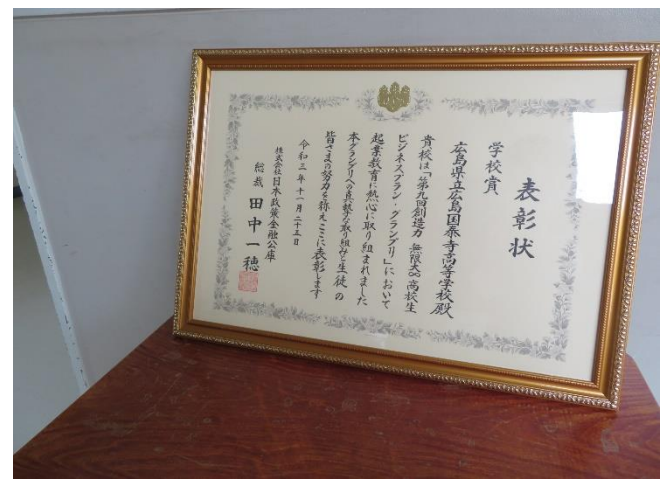 表彰状
学校賞
広島県立広島国泰寺高等学校殿
貴校は「第九回創造力、無限大∞高校生
ビジネスプラン・グランプリ」において
起業教育に熱心に取り組まれました
本グランプリへの真摯な取り組みと生徒の
皆さまの努力を称えここに表彰します
令和三年十一月二十五日
株式会社日本政策金融公庫
総裁 田中一穂